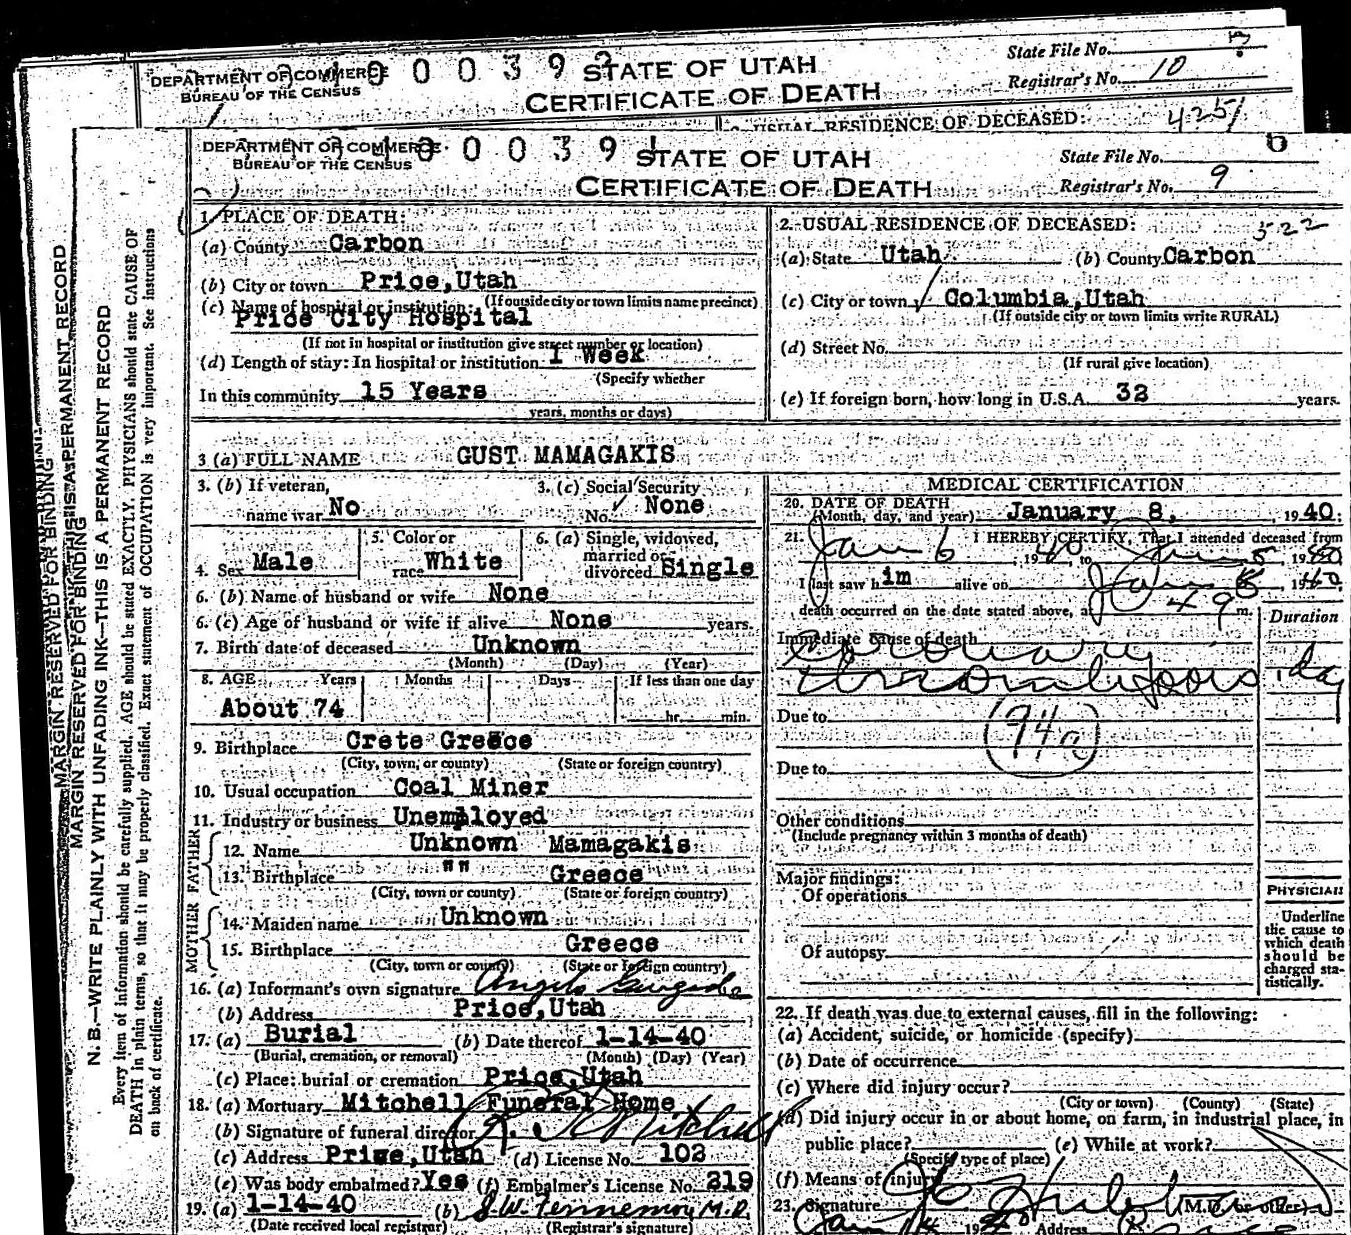 DEPARTMENT OF COMMERCE
BUREAU OF THE CENSUS
0 0 0 3 9
STATE OF UTAH
CERTIFICATE OF DEATH
State File No. 7
Registrar's No. 10
USUAL RESIDENCE OF DECEASED: 4251
DEPARTMENT OF COMMERCE
BUREAU OF THE CENSUS
0 0 0 3 9 1
STATE OF UTAH
CERTIFICATE OF DEATH
State File No. 6
Registrar's No. 9
MARGIN RESERVED FOR BINDING
N. B.—WRITE PLAINLY WITH UNFADING INK—THIS IS A PERMANENT RECORD
Every item of information should be carefully supplied. AGE should be stated EXACTLY. PHYSICIANS should state CAUSE OF
DEATH in plain terms, so that it may be properly classified. Exact statement of OCCUPATION is very important. See instructions
on back of certificate.
1. PLACE OF DEATH:
(a) County Carbon
(b) City or town Price, Utah
(If outside city or town limits name precinct)
(c) Name of hospital or institution:
Price City Hospital
(If not in hospital or institution give street number or location)
(d) Length of stay: In hospital or institution 1 Week
(Specify whether
In this community 15 Years
years, months or days)
2. USUAL RESIDENCE OF DECEASED: 522
(a) State Utah (b) County Carbon
(c) City or town Columbia, Utah
(If outside city or town limits write RURAL)
(d) Street No.
(If rural give location)
(e) If foreign born, how long in U.S.A. 32 years.
3 (a) FULL NAME GUST MAMAGAKIS
3. (b) If veteran,
name war No
3. (c) Social Security
No. None
4. Sex Male
5. Color or
race White
6. (a) Single, widowed,
married or
divorced Single
6. (b) Name of husband or wife None
6. (c) Age of husband or wife if alive None years.
7. Birth date of deceased Unknown
(Month) (Day) (Year)
8. AGE Years Months Days If less than one day
About 74 hr. min.
9. Birthplace Crete Greece
(City, town, or county) (State or foreign country)
10. Usual occupation Coal Miner
11. Industry or business Unemployed
FATHER
12. Name Unknown Mamagakis
13. Birthplace "" Greece
(City, town or county) (State or foreign country)
MOTHER
14. Maiden name Unknown
15. Birthplace Greece
(City, town or county) (State or foreign country)
16. (a) Informant's own signature Angelo
(b) Address Price, Utah
17. (a) Burial (b) Date thereof 1-14-40
(Burial, cremation, or removal) (Month) (Day) (Year)
(c) Place: burial or cremation Price, Utah
18. (a) Mortuary Mitchell Funeral Home
(b) Signature of funeral director Mitchell
(c) Address Price, Utah (d) License No. 102
(e) Was body embalmed? Yes (f) Embalmer's License No. 219
19. (a) 1-14-40 (b) J.W. Tennemoy M.D.
(Date received local registrar) (Registrar's signature)
MEDICAL CERTIFICATION
20. DATE OF DEATH
(Month, day, and year) January 8, 1940.
21. I HEREBY CERTIFY, That I attended deceased from
Jan 6, 1940, to Jan 8, 1940
I last saw him alive on Jan 8 1940
death occurred on the date stated above, at m.
Duration
Immediate cause of death
Coronary
thrombosis 1 day
Due to
94a
Due to
Other conditions
(Include pregnancy within 3 months of death)
Major findings:
Of operations
Of autopsy
PHYSICIAN
Underline
the cause to
which death
should be
charged sta-
tistically.
22. If death was due to external causes, fill in the following:
(a) Accident, suicide, or homicide (specify)
(b) Date of occurrence
(c) Where did injury occur?
(City or town) (County) (State)
(d) Did injury occur in or about home, on farm, in industrial place, in
public place? (e) While at work?
(Specify type of place)
(f) Means of injury
23. Signature (M.D. or other)
Jan 14 1940 Address Price